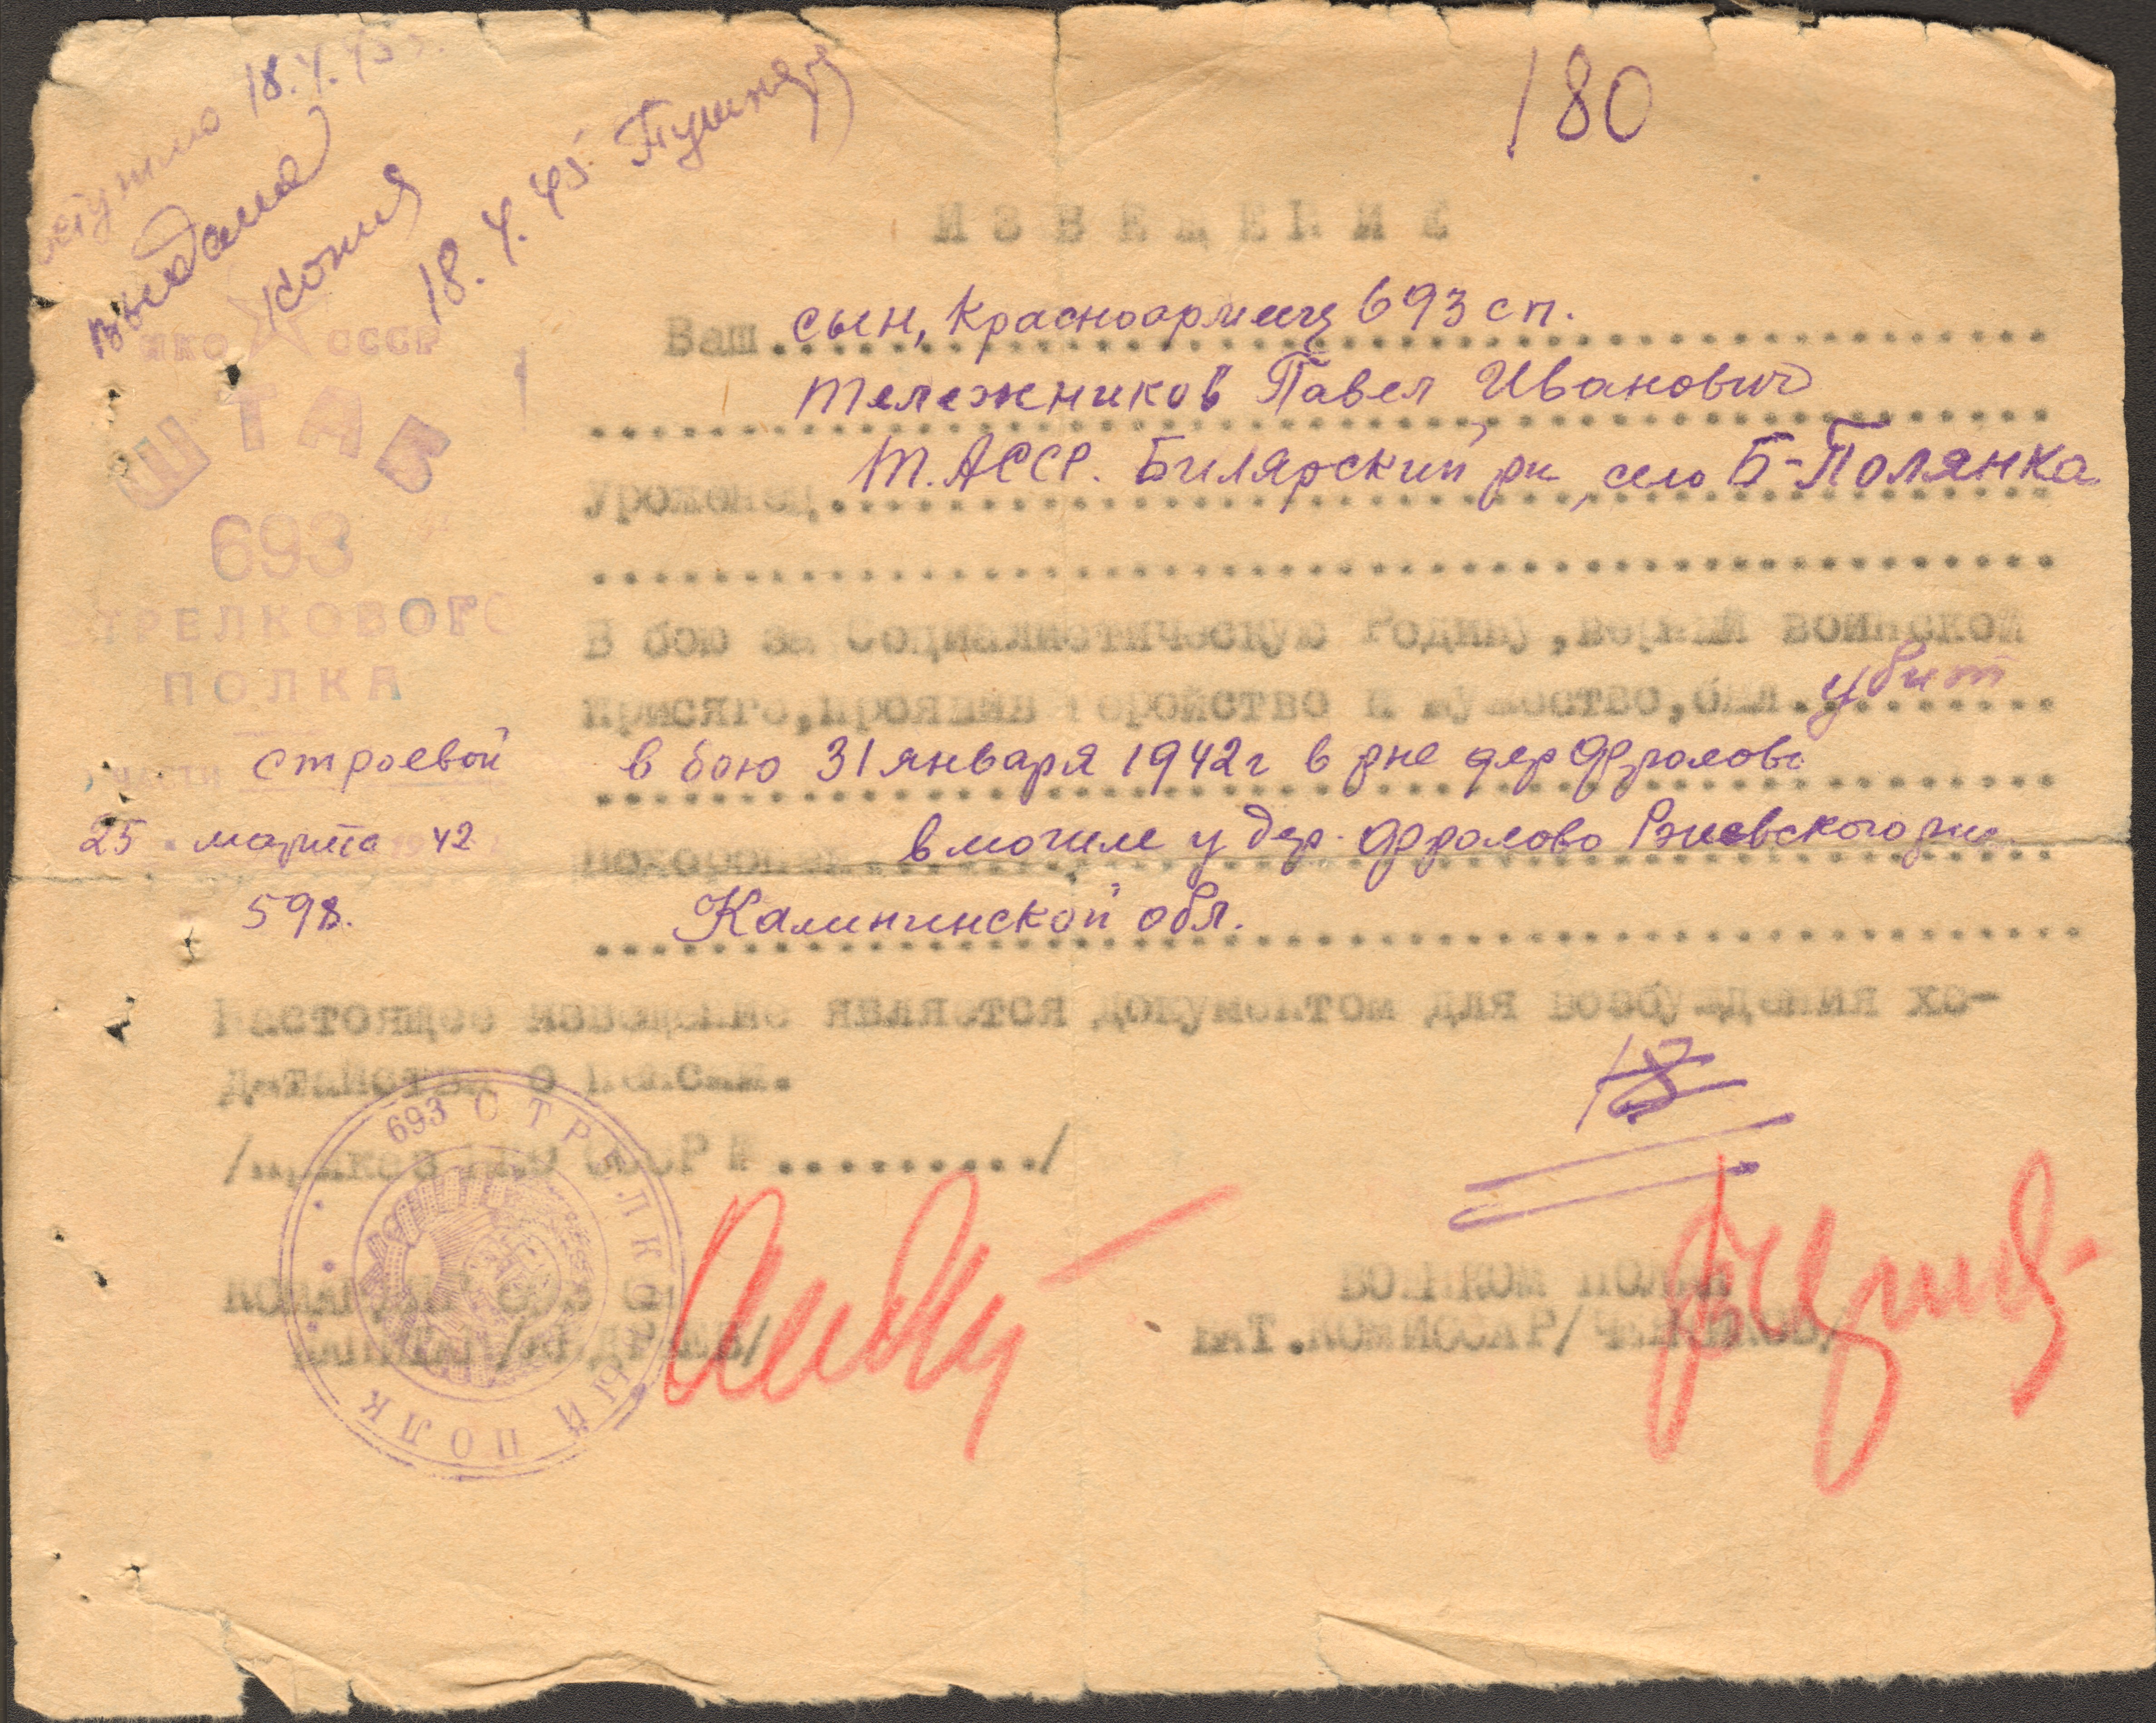 18.4.45
выдана
копия
18.4.45
180
ИЗВЕЩЕНИЕ
НКО СССР
ШТАБ
693
СТРЕЛКОВОГО
ПОЛКА
ЧАСТЬ строевой
25 марта 1942
598.
Ваш сын, Красноармеец 693 сп.
Тележников Павел Иванович
Уроженец Т.АССР. Билярский рн, село Б-Полянка
В бою за Социалистическую Родину, верный воинской
присяге, проявив геройство и мужество, был убит
в бою 31 января 1942г в рне дер Фролово
похоронен в могиле у дер. Фролово Ржевского рна
Калининской обл.
Настоящее извещение является документом для возбуждения хо-
датайства о пенсии.
/Приказ НКО СССР № ........../
693 СТРЕЛКОВЫЙ ПОЛК
КОМАНДИР 693 СП
КАПИТАН /АНДРЕЕВ/
ВОЕНКОМ ПОЛКА
БАТ.КОМИССАР/